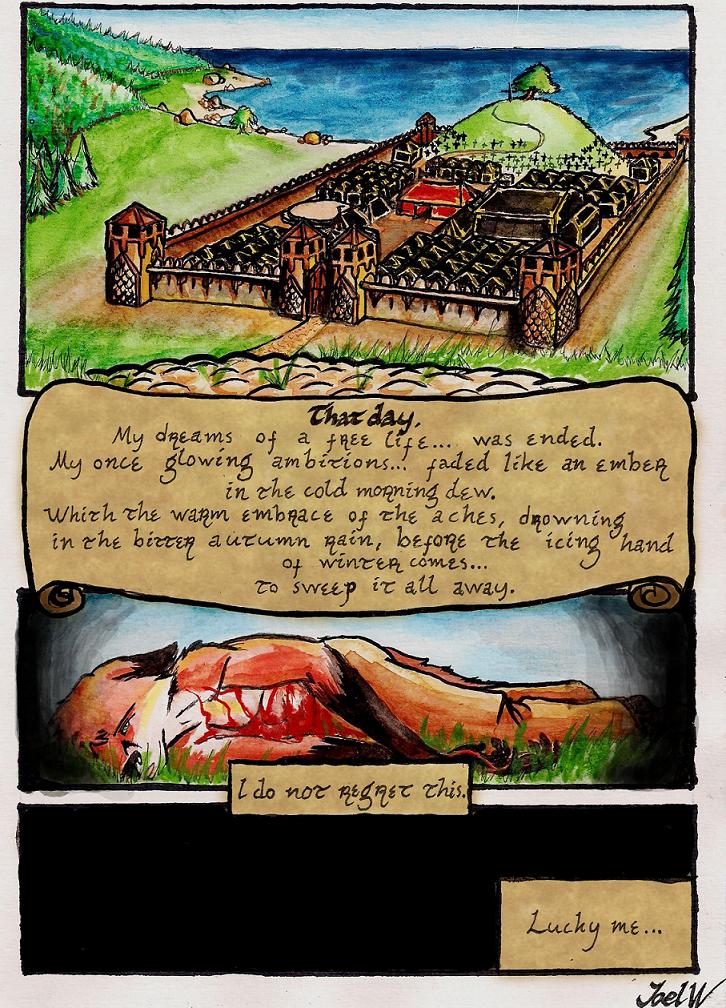 That day,
My dreams of a free life... was ended.
My once glowing ambitions... faded like an ember
in the cold morning dew.
Whith the warm embrace of the aches, drowning
in the bitter autumn rain, before the icing hand
of winter comes...
to sweep it all away.
I do not regret this.
Lucky me...
JoelW